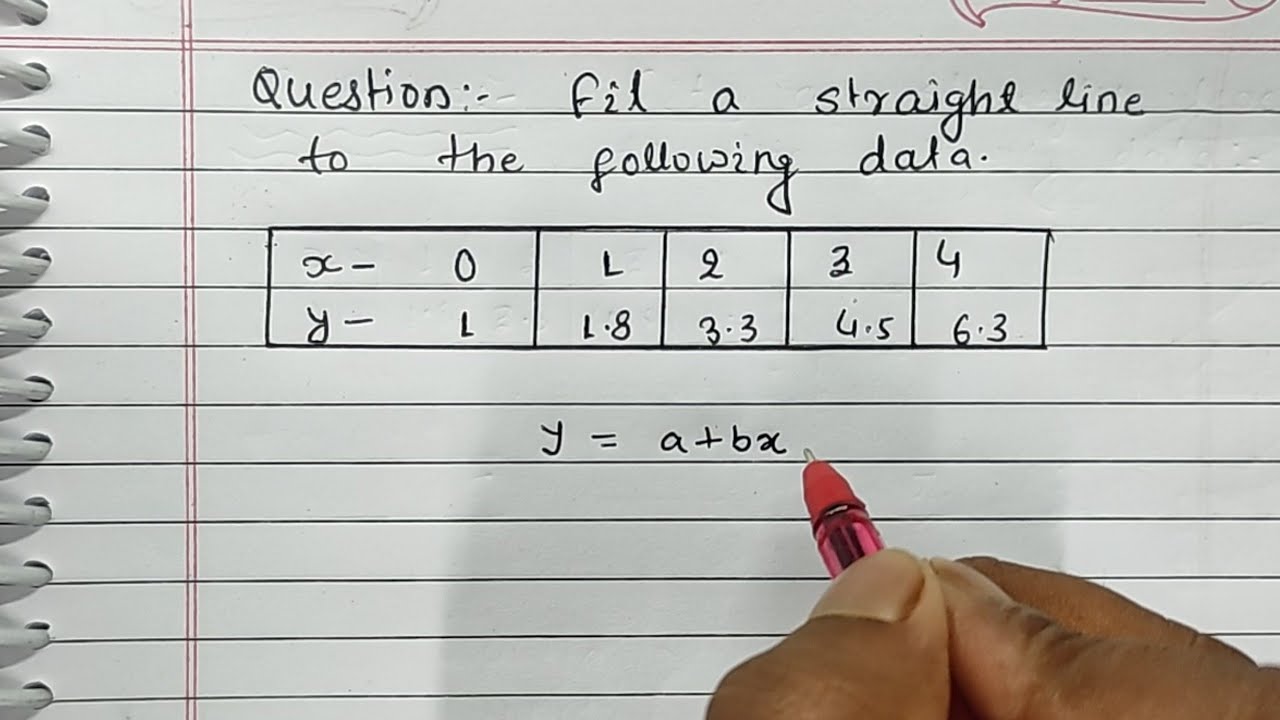 Question:- Fit a straight line
to the following data.
x - 0 1 2 3 4
y - 1 1.8 3.3 4.5 6.3
y = a+bx